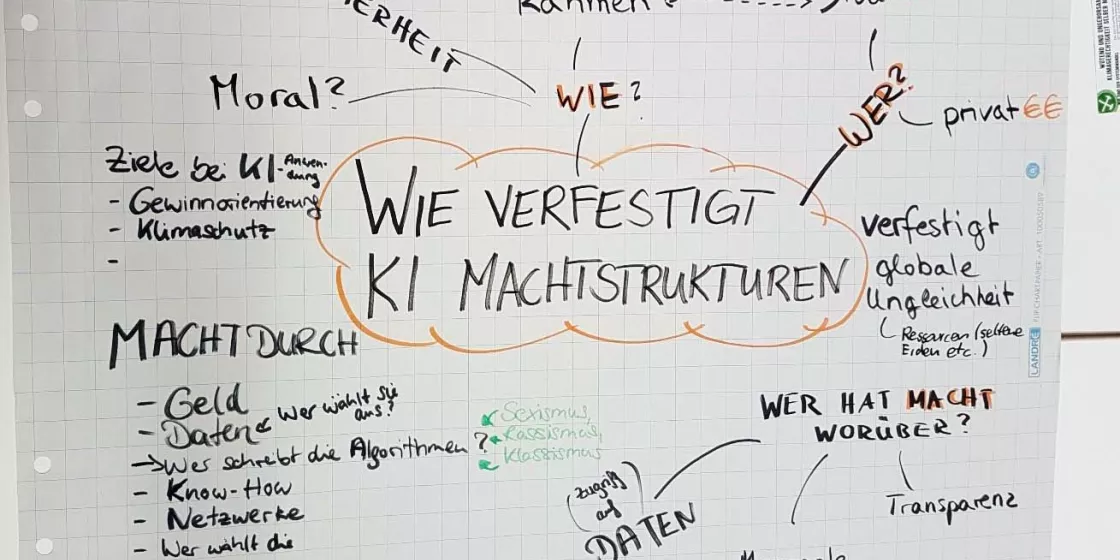 Rahmen?
ERHEIT
WIE?
Moral?
WER?
privat €€
Ziele bei KI-Anwendung
- Gewinnorientierung
- Klimaschutz
-
WIE VERFESTIGT
KI MACHTSTRUKTUREN
verfestigt
globale
Ungleichheit
Ressourcen (seltene
Erden etc.)
MACHT DURCH
- Geld
- Daten
Wer wählt sie
aus?
→ Wer schreibt die Algorithmen?
Sexismus,
Rassismus,
Klassismus
- Know-How
- Netzwerke
- Wer wählt die
WER HAT MACHT
WORÜBER?
(Zugriff
auf)
DATEN
Transparenz
LANDRÉ